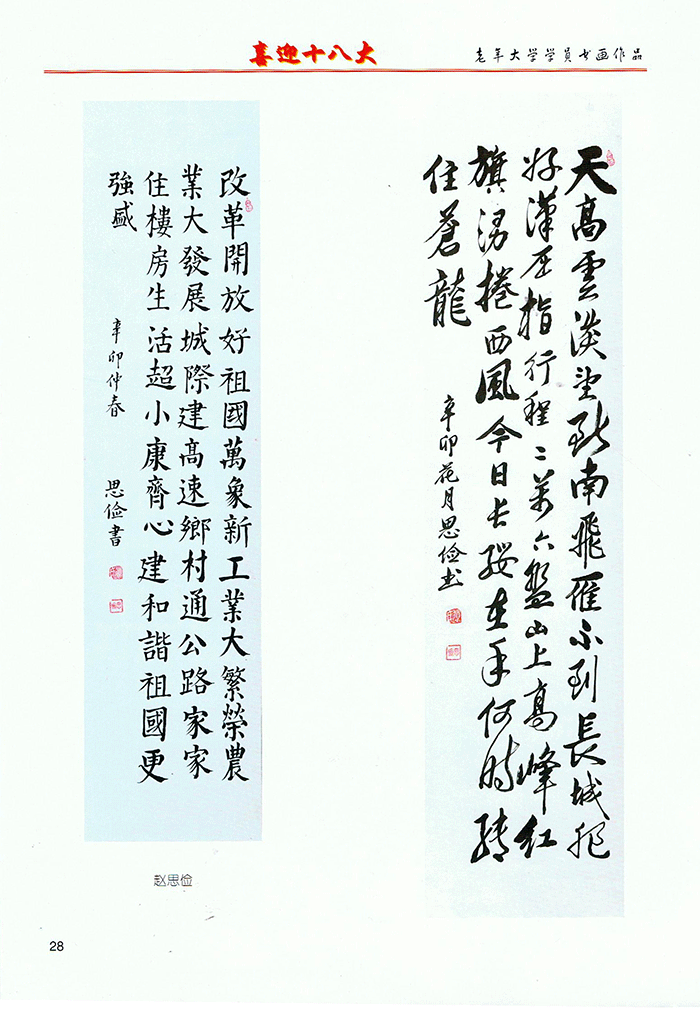 喜迎十八大
老年大学学员书画作品
天高雲淡望断南飛雁不到長城非
好漢屈指行程二萬六盤山上高峰紅
旗漫捲西風今日長纓在手何時縛
住蒼龍
辛卯花月思俭书
改革開放好祖國萬象新工業大繁榮農
業大發展城際建高速鄉村通公路家家
住樓房生活超小康齊心建和諧祖國更
強盛
辛卯仲春 思俭書
赵思俭
28